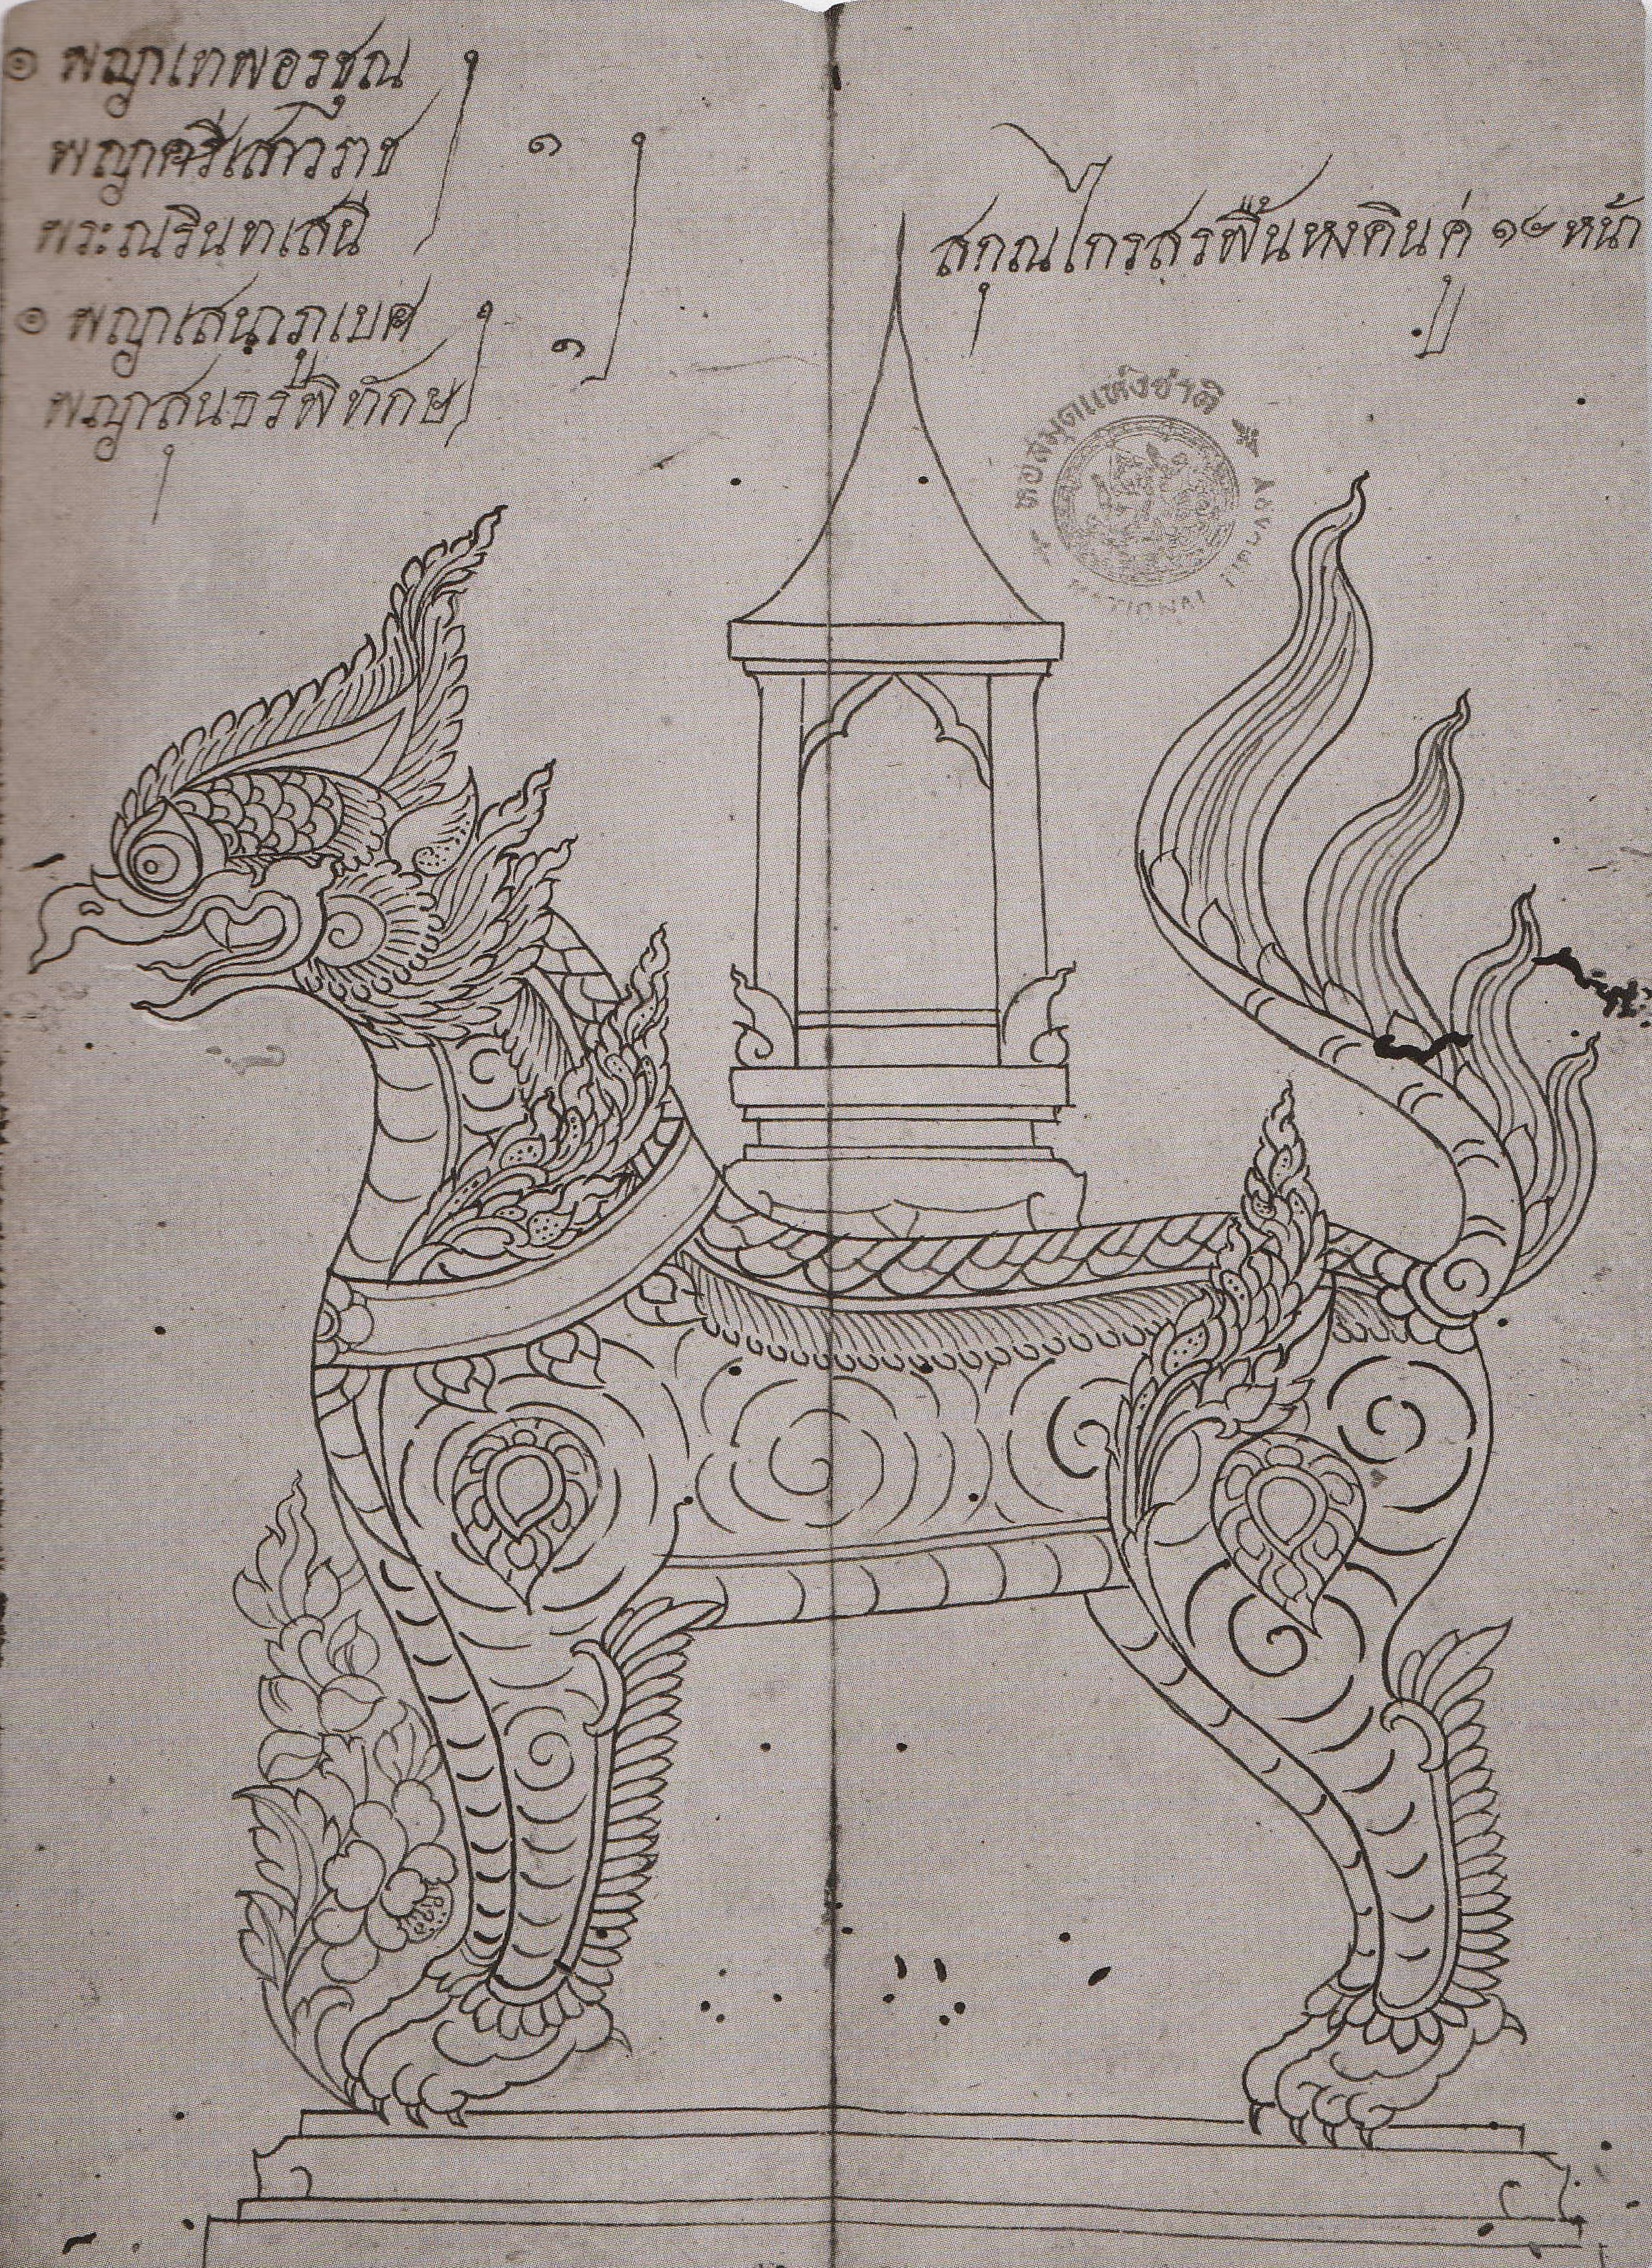 ๏ พญาเทพอรชุณ
พญาศรีเสาวราช
พระณรินทเสนี
๑
๏ พญาเสนาภูเบศ
พญาสุนธรพิทักษ
๑
สกุณไกรสรพื้นหงคินคู่ ๑๙ หน้า
หอสมุดแห่งชาติ
NATIONAL LIBRARY